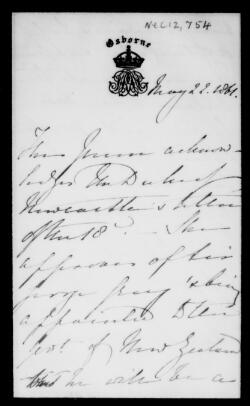 NeC12,754
Osborne
May 22. 1861.
The Queen acknow-
ledges the Duke of
Newcastle's letter
of the 18th. She
approves of Sir
George Grey's being
appointed to the
Govt. of New Zealand
that he will be a